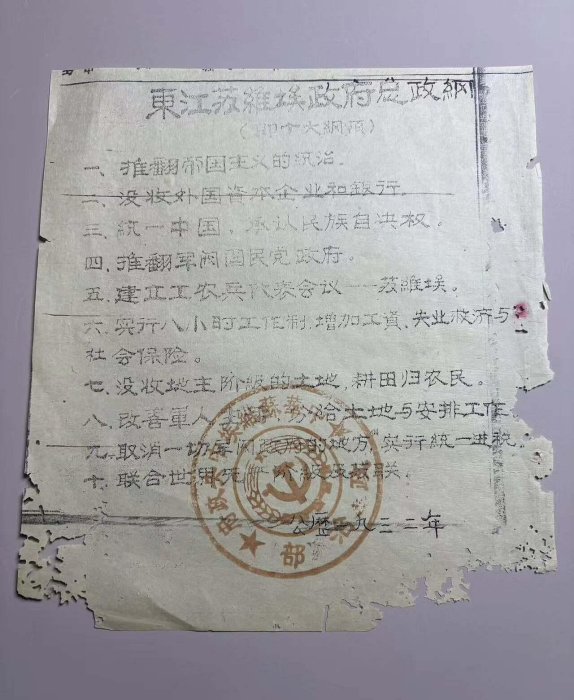 東江苏維埃政府总政綱
(即十大綱領)
一、推翻帝国主义的統治。
二、没收外国資本企业和銀行。
三、統一中国，承认民族自决权。
四、推翻軍阀国民党政府。
五、建立工农兵代表会议——苏維埃。
六、实行八小时工作制，增加工資、失业救济与
社会保险。
七、没收地主阶級的土地，耕田归农民。
八、改善軍人 分給土地与安排工作
九、取消一切 政府的地方，实行統一进税
十、联合世界 苏联。
公歷一九三二年
部